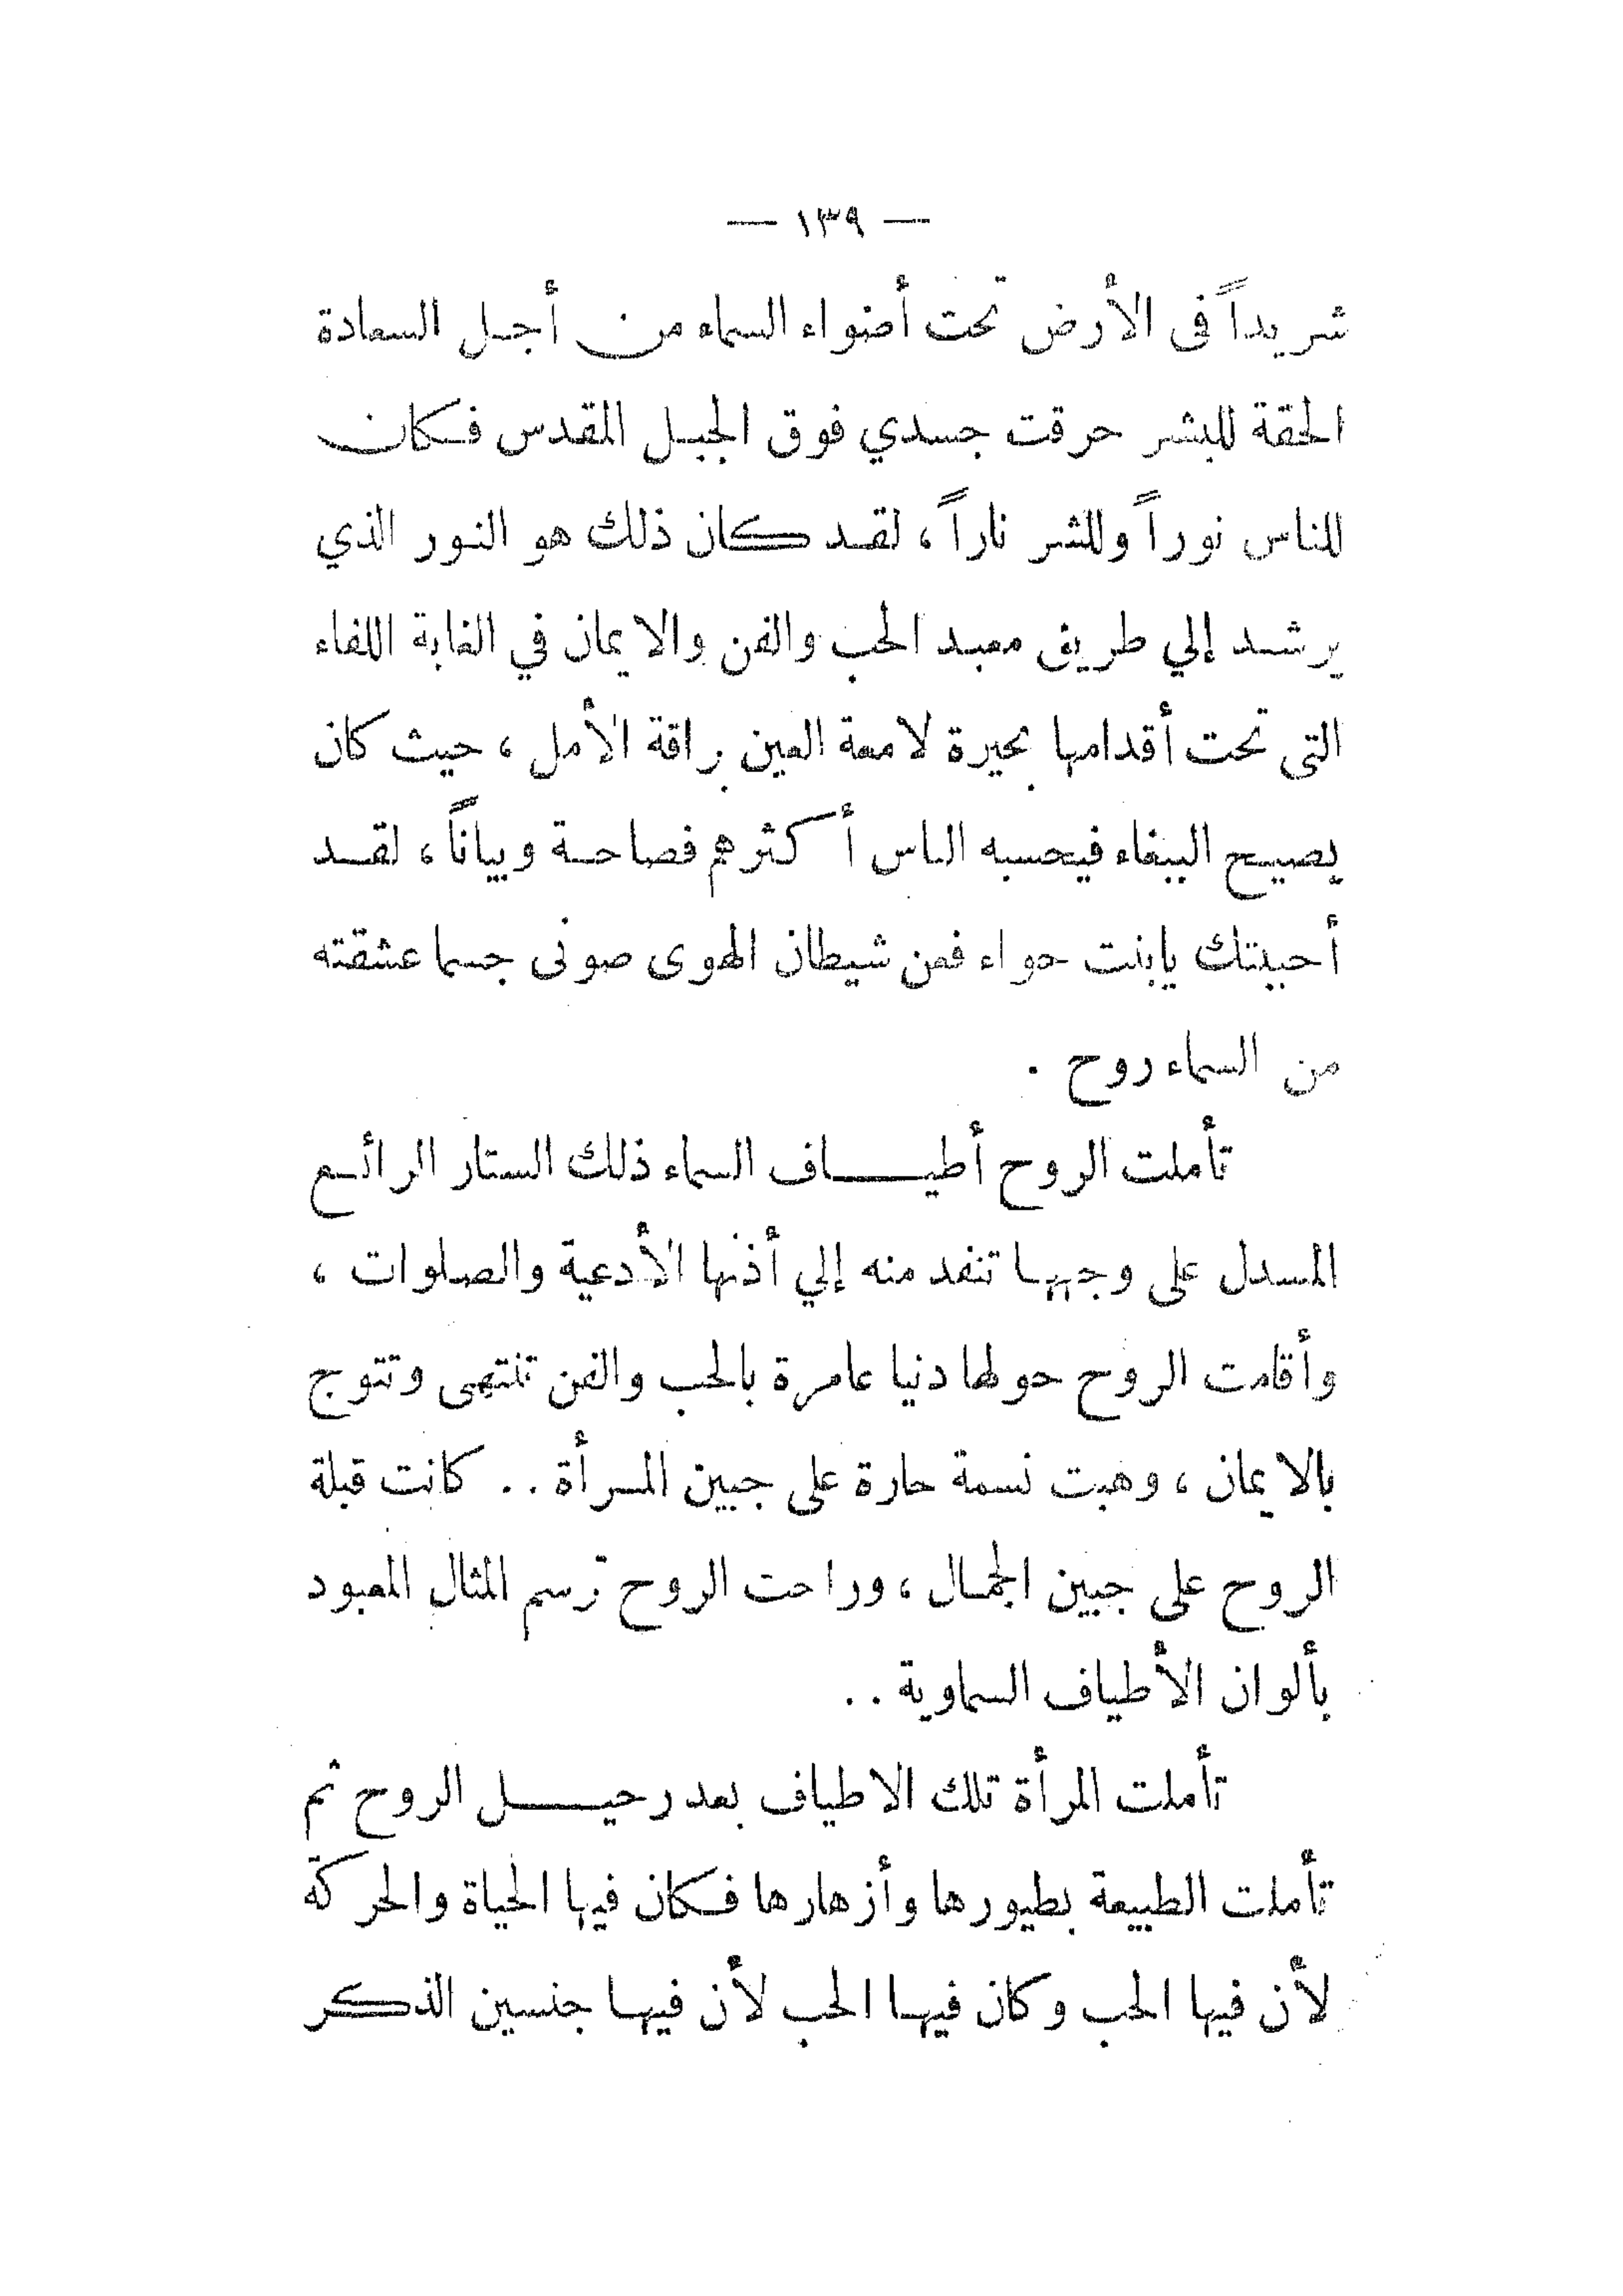 — ١٣٩ —
شريداً فى الأرض تحت أضواء السماء من أجل السعادة
الحقة للبشر حرقت جسدي فوق الجبل المقدس فكان
للناس نوراً وللشر ناراً ، لقد كان ذلك هو النور الذي
يرشد إلي طريق معبد الحب والفن والايمان في الغابة اللفاء
التى تحت أقدامها بحيرة لامعة العين براقة الأمل ، حيث كان
يصيح الببغاء فيحسبه الناس أكثرهم فصاحة وبياناً ، لقد
أحببتك يابنت حواء فمن شيطان الهوى صونى جسما عشقته
من السماء روح .
تأملت الروح أطياف السماء ذلك الستار الرائع
المسدل على وجهها تنفد منه إلي أذنها الأدعية والصلوات ،
وأقامت الروح حولها دنيا عامرة بالحب والفن تنتهى وتتوج
بالايمان ، وهبت نسمة حارة على جبين المرأة .. كانت قبلة
الروح على جبين الجمال ، وراحت الروح ترسم المثال المعبود
بألوان الأطياف السماوية ..
تأملت المرأة تلك الاطياف بعد رحيل الروح ثم
تأملت الطبيعة بطيورها وأزهارها فكان فيها الحياة والحركة
لأن فيها الحب وكان فيها الحب لأن فيها جنسين الذكر